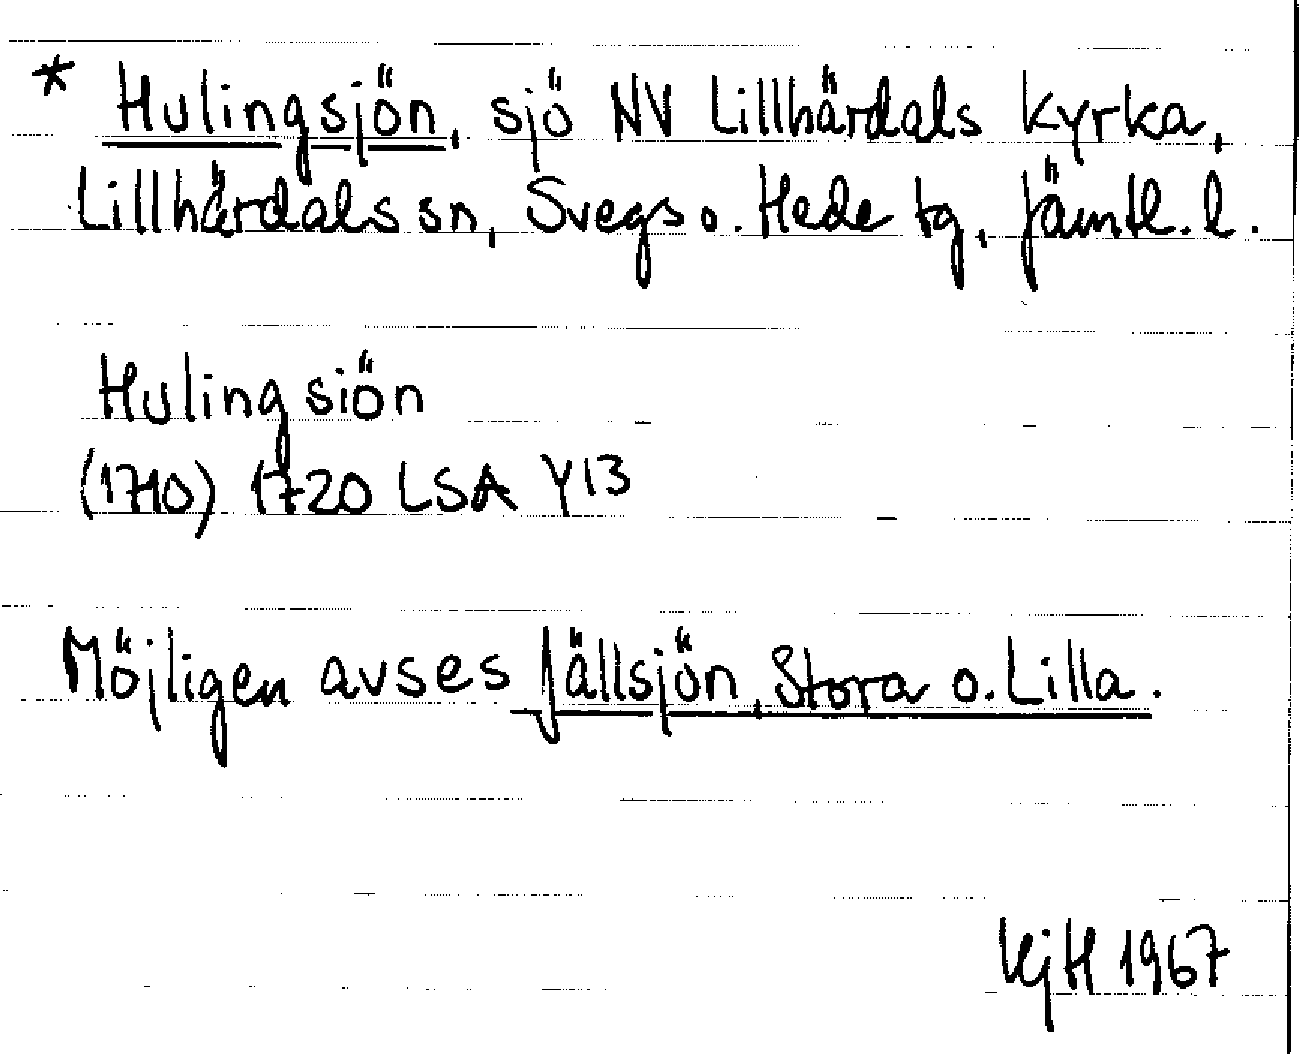 * Hulingsjön, sjö NV Lillhärdals kyrka,
Lillhärdals sn, Svegs o. Hede tg, Jämtl. l.
Hulingsiön
(1710) 1720 LSA Y13
Möjligen avses Jällsjön, Stora o. Lilla.
KjH 1967